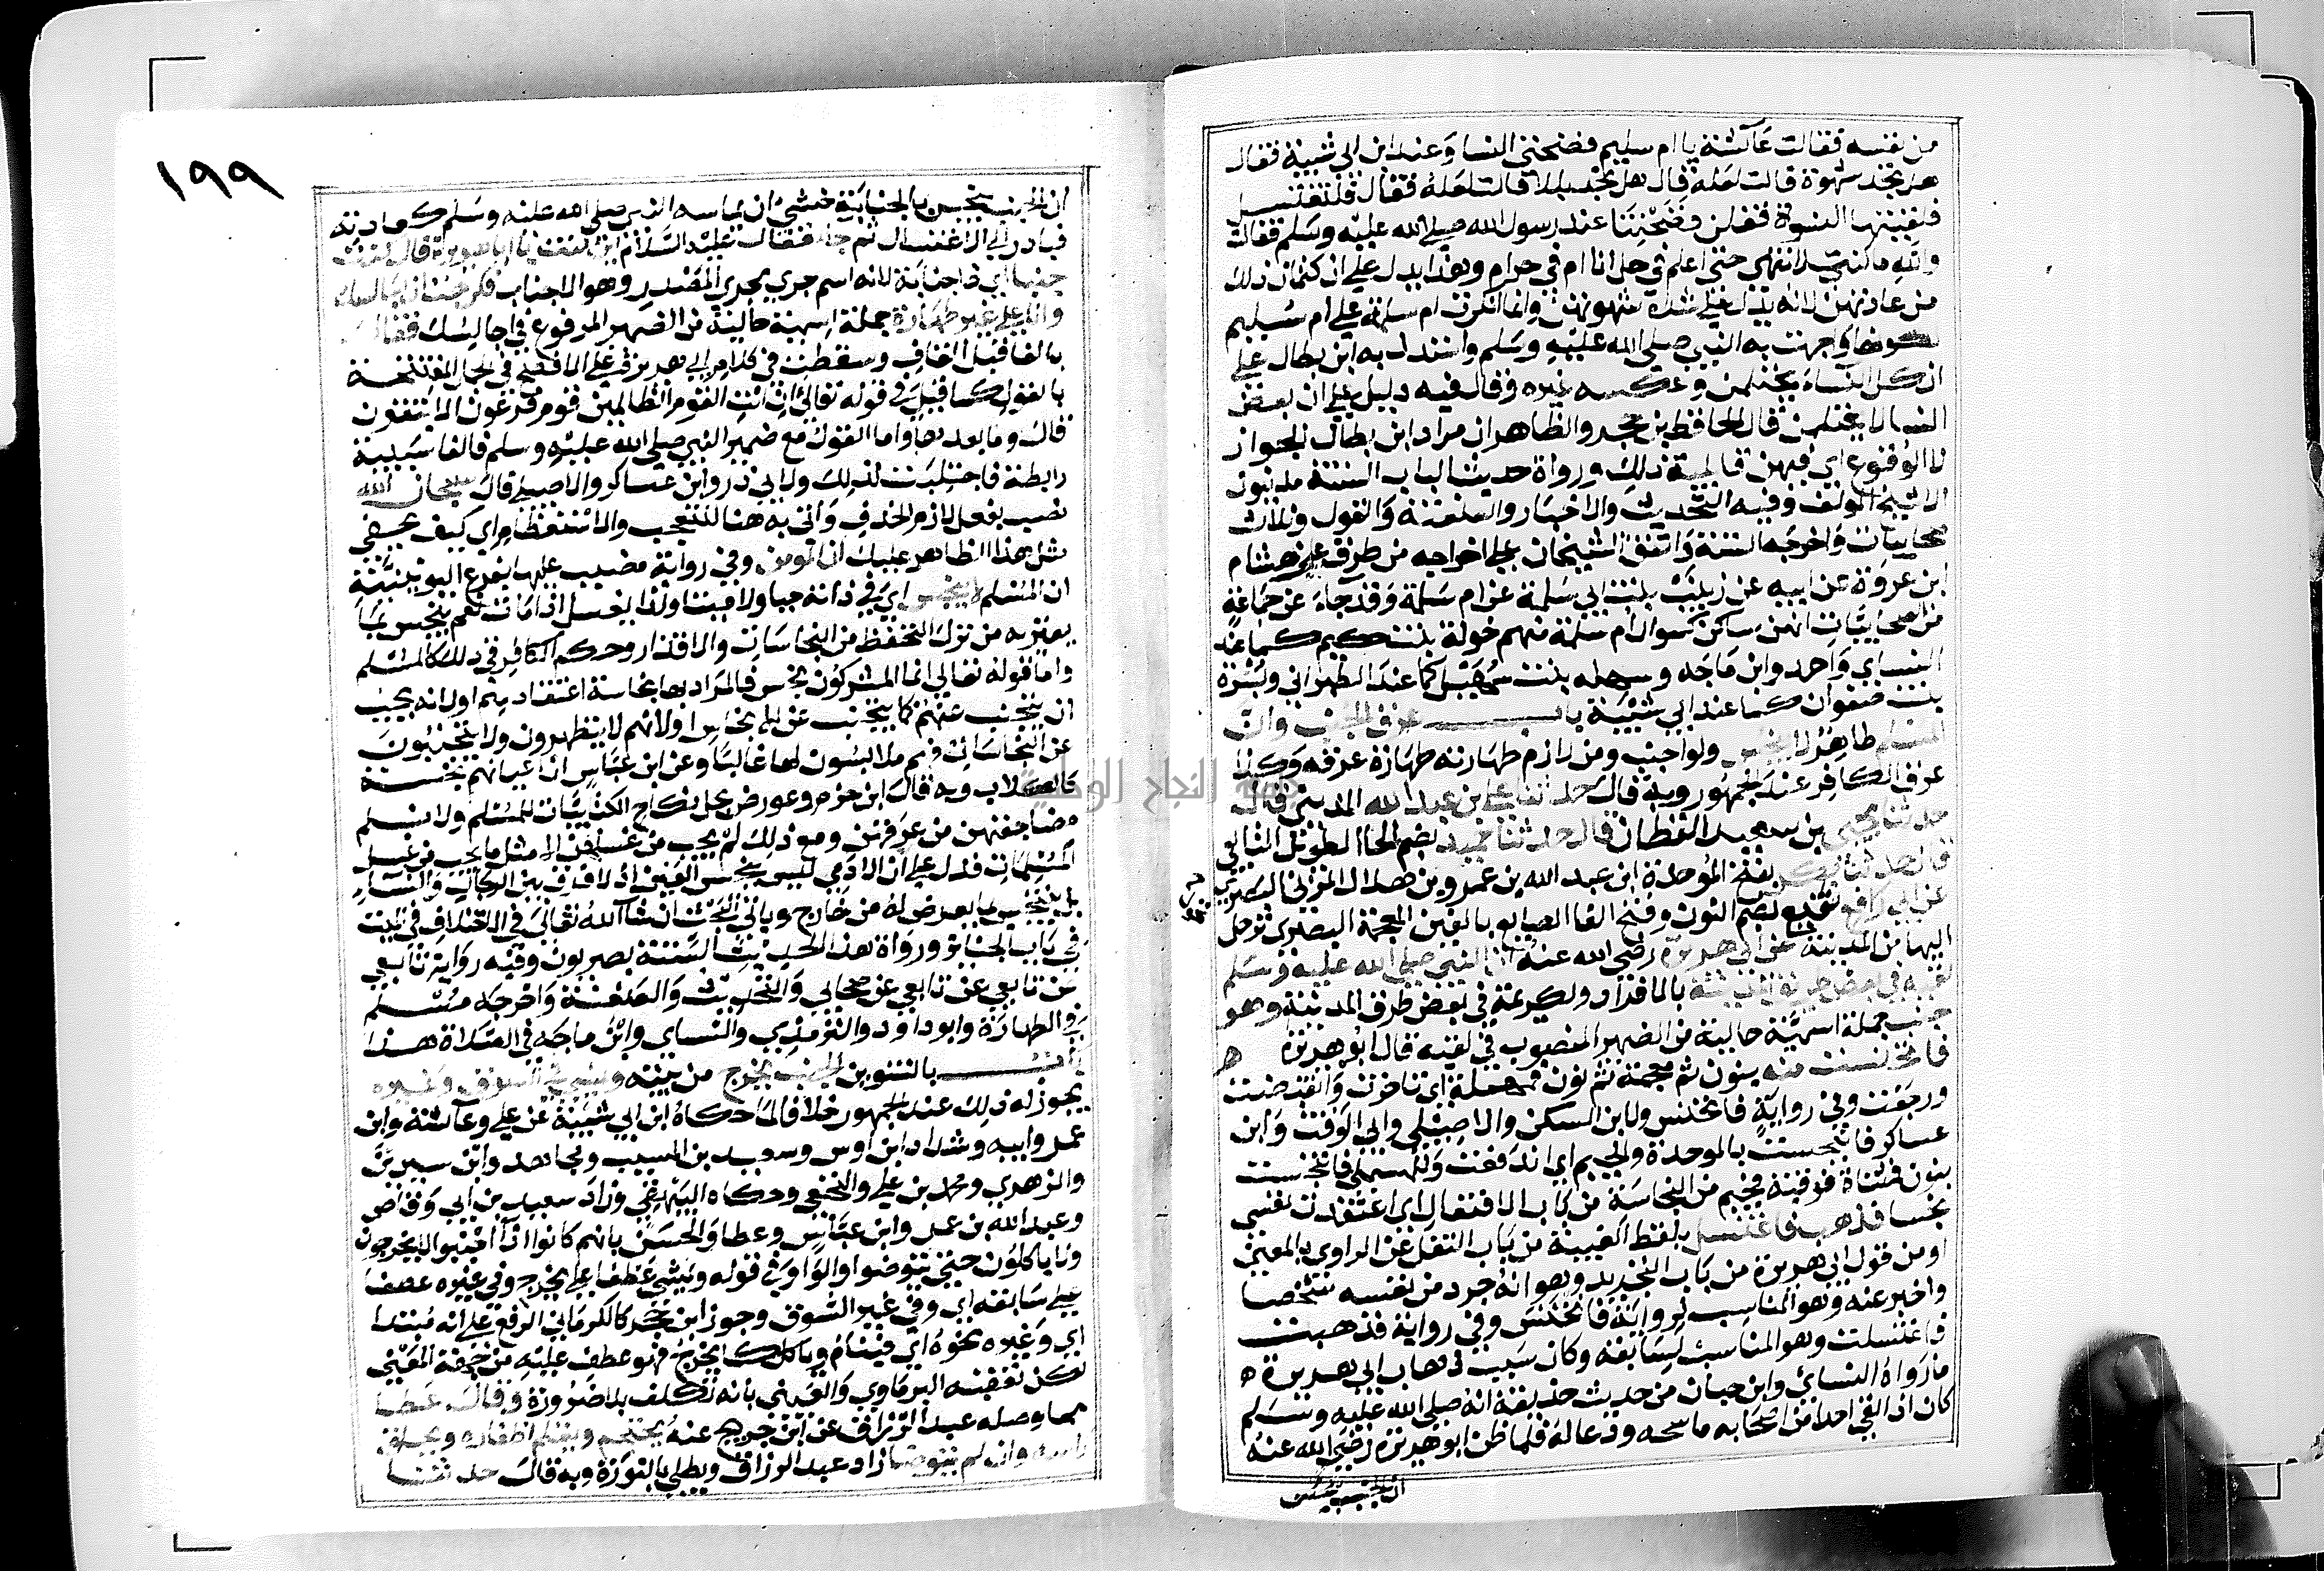 من نفسه فقالت عائشة يا ام سليم فضحتي النسا وعند ابن ابي شيبة فقال
هل تجد شهوة قالت لعله قال هل تجد بللا قالت لعله فقال فلتغتسل
فلقيتها النسوة فقلن فضحتنا عند رسول الله صلى الله عليه وسلم فقالت
والله ما كنت لانتهي حتى اعلم في حل انا ام في حرام وهذا يدل على ان كتمان ذلك
من عادتهن لانه يدل على شدة شهوتهن وانما انكرت ام سلمة على ام سليم
لكونها واجهت به النبي صلى الله عليه وسلم واستدل به ابن بطال على
ان كل النساء يحتلمن وعكسه غيره وقال فيه دليل على ان بعض
النسا لا يحتلمن قال الحافظ بن حجر والظاهر ان مراد ابن بطال الجواز
لا الوقوع اي فيهن قابلية ذلك ورواة حديث الباب الستة مدنيون
الا شيخ المولف وفيه التحديث والاخبار والعنعنة والقول وثلاث
صحابيات واخرجه الستة واتفق الشيخان على اخراجه من طرق عن هشام
ابن عروة عن ابيه عن زينب بنت ابي سلمة عن ام سلمة وقد جاء عن جماعة
من الصحابيات انهن سالن كسوال ام سلمة منهم خولة بنت حكيم كما عند
النساي واحمد وابن ماجه وسهله بنت سهيل كما عند الطبراني وبسرة
بنت صفوان كما عند ابي شيبة باب عرق الجنب وان
المسلم طاهر لا ينجس ولو اجنب ومن لازم طهارته طهارة عرقه وكذا
عرق الكافر عند الجمهور وبه قال حدثنا علي بن عبد الله المديني قال
حدثنا يحيى بن سعيد القطان قال حدثنا حميد بضم الحا الطويل التابعي
قال حدثنا بكر بفتح الموحدة ابن عبد الله بن عمرو بن هلال المزني البصري
عن ابي رافع نفيع بضم النون وفتح الفا الصايغ بالغين المعجمة البصري تحول
اليها من المدينة عن ابي هريرة رضي الله عنه ان النبي صلى الله عليه وسلم
لقيه في بعض طريق المدينة بالافراد ولكريمة في بعض طرق المدينة وهو
جنب جملة اسمية حالية من الضمير المنصوب في لقيه قال ابو هريرة
فانخنست منه بنون ثم معجمة ثم نون فمهملة اي تاخرت وانقبضت
ورجعت وفي رواية فانخنس ولابن السكن والاصيلي وابي الوقت وابن
عساكر فانبجست بالموحدة والجيم اي اندفعت وللمستملي فانتجست
بنون فمثناة فوقية فجيم من النجاسة من باب الافتعال اي اعتقدت نفسي
نجسا فذهب فاغتسل بلفظ الغيبة من باب النقل عن الراوي بالمعنى
او من قول ابي هريرة من باب التجريد وهو انه جرد من نفسه شخصا
واخبر عنه وهو المناسب لرواية فانخنس وفي رواية فذهبت
فاغتسلت وهو المناسب لسابقه وكان سبب ذهاب ابي هريرة
ما رواه النسائي وابن حبان من حديث حذيفة انه صلى الله عليه وسلم
كان اذا لقي احدا من اصحابه ماسحه ودعا له فلما ظن ابو هريرة رضي الله عنه
ان الجنب ينجس
١٩٩
ان الجنب ينجس بالجنابة خشي ان يماسه النبي صلى الله عليه وسلم كعادته
فبادر الى الاغتسال ثم جاء فقال عليه السلام اين كنت يا ابا هريرة قال كنت
جنبا اي ذا جنابة لانه اسم جري مجرى المصدر وهو الاجناب فكرهت ان اجالسك
وانا على غير طهارة جملة اسمية حالية من الضمير المرفوع في اجالسك فقال
بالفا قبل القاف وسقطت في كلام ابي هريرة على الافصح في الجمل المفتتحة
بالقول كما قيل في قوله تعالى ان ائت القوم الظالمين قوم فرعون الا يتقون
قال وما بعدها واما القول مع ضمير النبي صلى الله عليه وسلم فالفا سببية
رابطة فاجتلبت لذلك ولابي ذر وابن عساكر والاصيلي قال سبحان الله
نصب بفعل لازم الحذف واتى به هنا للتعجب والاستعظام اي كيف يخفى
مثل هذا الظاهر عليك ان المومن وفي رواية مضبب عليها بفرع اليونينية
ان المسلم لا ينجس اي في ذاته حيا ولا ميتا ولذا يغسل اذا مات نعم ينجس بما
يعتريه من ترك التحفظ من النجاسات والاقذار وحكم الكافر في ذلك كالمسلم
واما قوله تعالى انما المشركون نجس فالمراد بها نجاسة اعتقادهم او لانه يجب
ان يتجنب عنهم كما يتجنب عن الانجاس او لانهم لا يتطهرون ولا يتجنبون
عن النجاسات فهم ملابسون لها غالبا وعن ابن عباس ان اعيانهم نجسة
كالكلاب وبه قال ابن حزم وعورض بحل نكاح الكتابيات للمسلم ولا تسلم
مضاجعتهن من عرقهن ومع ذلك لم يجب من غسلهن الا مثل ما يجب من غسل
المسلمات فدل على ان الادمي ليس بنجس العين اذ لا فرق بين الرجال والنساء
بل يتنجس بما يعرض له من خارج وياتي البحث ان شا الله تعالى في الاختلاف في الميت
في باب الجنائز ورواة هذا الحديث الستة بصريون وفيه رواية تابعي
عن تابعي عن تابعي عن صحابي والتحديث والعنعنة واخرجه مسلم
في الطهارة وابو داود والترمذي والنساي وابن ماجه في الصلاة هذا
باب بالتنوين الجنب يخرج من بيته ويمشي في السوق وغيره
يجوز له ذلك عند الجمهور خلافا لما حكاه ابن ابي شيبة عن علي وعائشة وابن
عمر وابيه وشداد ابن اوس وسعيد بن المسيب ومجاهد وابن سيرين
والزهري ومحمد بن علي والنخعي وحكاه البيهقي وزاد سعيد بن ابي وقاص
وعبد الله بن عمر وابن عباس وعطا والحسن بانهم كانوا اذا اجنبوا لا يخرجون
ولا ياكلون حتى يتوضوا والواو في قوله ويمشي عطفا على يخرج وفي غيره عطف
على سابقه اي وفي غير السوق وجوز ابن حجر كالكرماني الرفع على انه مبتدا
اي وغيره نحوه اي فينام وياكل كما يخرج فهو عطف عليه من جهة المعنى
لكن تعقبه البرماوي والعيني بانه تكلف بلا ضرورة وقال عطا
مما وصله عبد الرزاق عن ابن جريج عنه يحتجم ويقلم اظفاره ويحلق
راسه وان لم يتوضا زاد عبد الرزاق ويطلي بالنورة وبه قال حدثنا
النجاح الوطنية